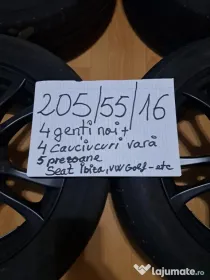 205/55/16
4 genți noi +
4 cauciucuri vară
5 prezoane
Seat Ibiza, VW Golf - etc
Lajumate.ro